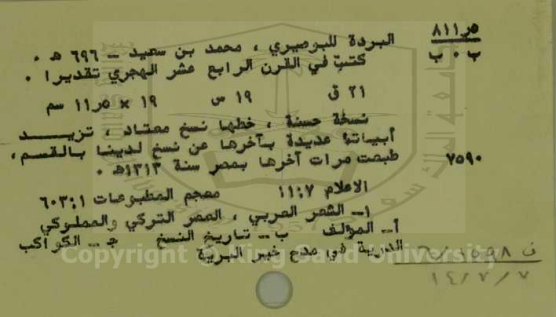 ٨١١ر٥
ب ٠ ب
البردة للبوصيري ، محمد بن سعيد - ٦٩٦ ه ٠
كتب في القرن الرابع عشر الهجري تقديرا ٠
٢١ ق ١٩ س ١٩ × ١١ر٥ سم
٧٥٩٠
نسخة حسنة ، خطها نسخ معتاد ، تزيد
أبياتة عديدة بآخرها عن نسخ لدينا بالقسم ،
طبعت مرات آخرها بمصر سنة ١٣١٣ه ٠
الاعلام ١١:٧ معجم المطبوعات ٦٠٣:١
١- الشعر العربي ، العصر التركي والمملوكي
أ- المؤلف ب- تاريخ النسخ ج- الكواكب
الدرية في مدح خير البرية
Copyright © King Saud University
١٤/٧/٧